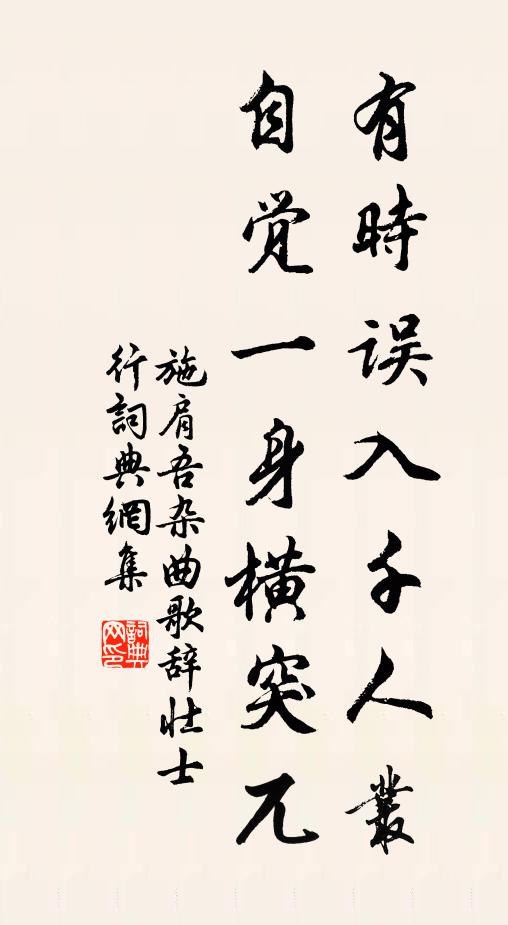 有時误入千人叢
自觉一身橫突兀
施肩吾杂曲歌辞壮士
行詞典網集
詞典网印